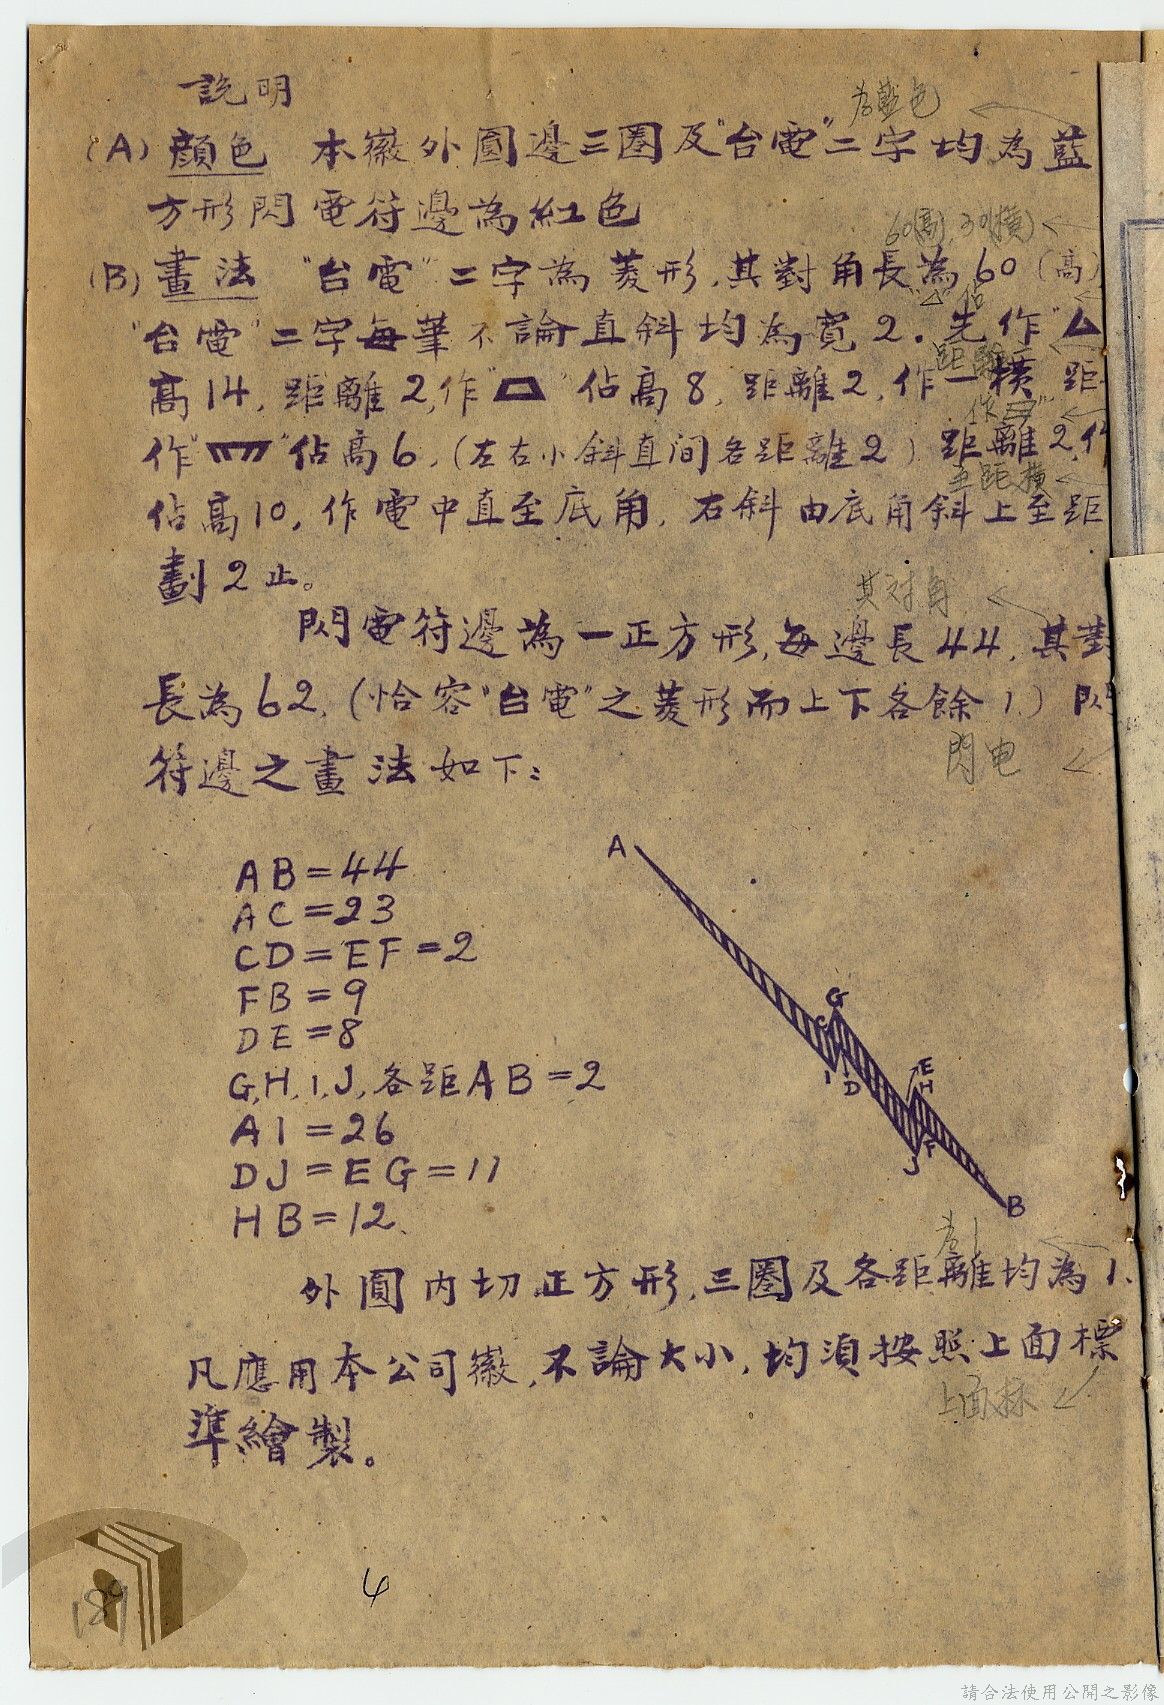 説明
為藍色
(A) 顔色 本徽外圓邊三圈及"台電"二字均為藍
方形閃電符邊為紅色
60(高),30(橫)
(B) 畫法 "台電"二字為菱形,其對角長為60(高)
"台電"二字每筆不論直斜均為寬2.先作"△
距離
高14,距離2,作"⏢"佔高8,距離2,作一橫 距
作" "佔高6,(左右小斜直间各距離2) 距離2,作
至距橫
佔高10,作電中直至底角,右斜由底角斜上至距
劃2止。
其対角
閃電符邊為一正方形,每邊長44,其對
長為62,(恰容"台電"之菱形而上下各餘1.) 閃
閃电
符邊之畫法如下:
AB=44
AC=23
CD=EF=2
FB=9
DE=8
G,H,I,J,各距AB=2
AI=26
DJ=EG=11
HB=12.
A
G
C
I
D
E
H
J
F
B
為1
外圓內切正方形,三圈及各距離均為1.
凡應用本公司徽,不論大小,均須按照上面標
上面标
準繪製。
4
189
請合法使用公開之影像